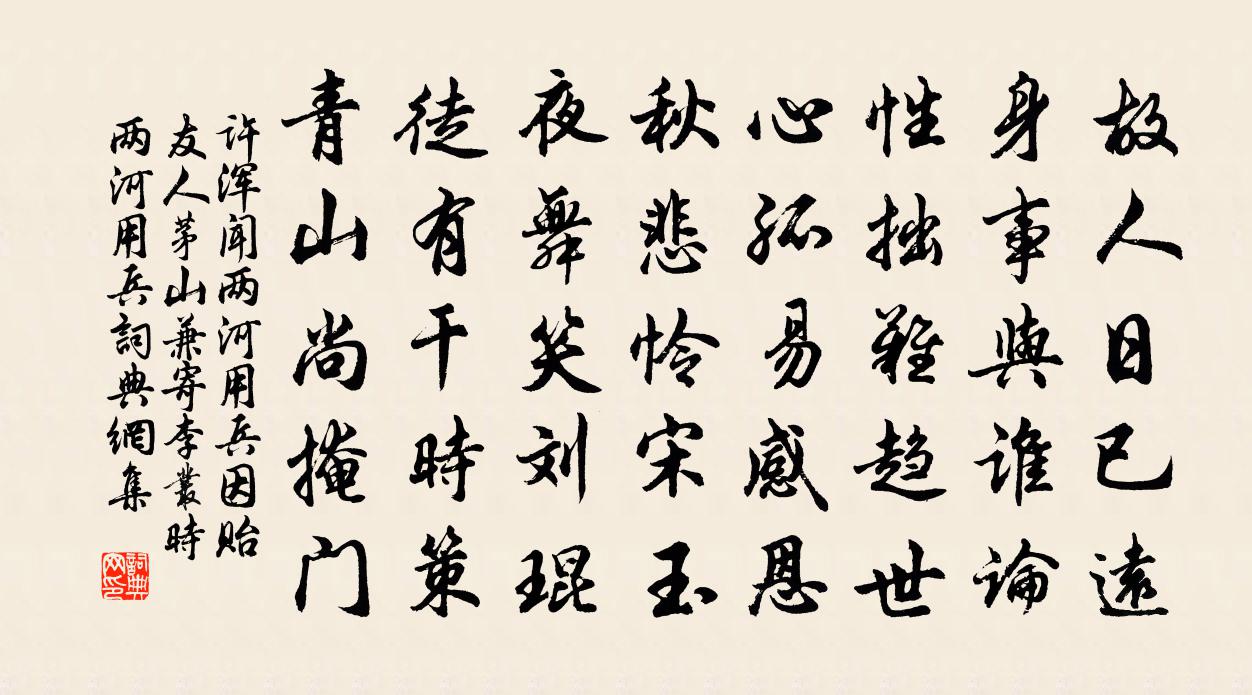 故人日已遠
身事與誰論
性拙難趋世
心孤易感恩
秋悲怜宋玉
夜舞笑刘琨
徒有干時策
青山尚掩门
许浑闻两河用兵因贻
友人茅山兼寄李叢時
两河用兵詞典網集
詞典
网印